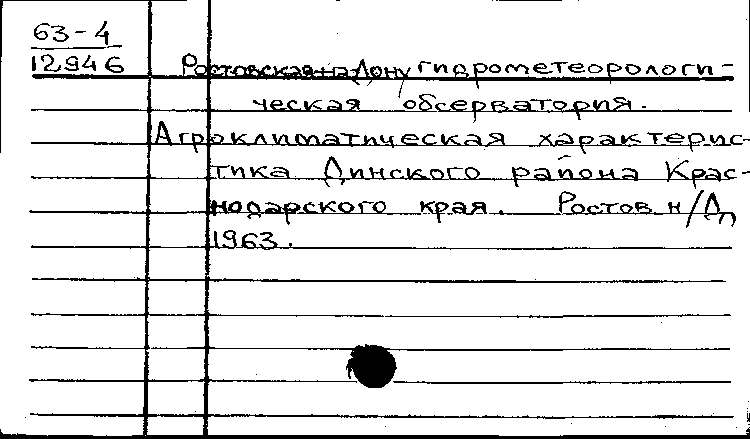 63-4
12946
Ростовская-на-Дону гидрометеорологи-
ческая обсерватория.
Агроклиматическая характерис-
тика Динского района Крас-
нодарского края. Ростов н/Д,
1963.